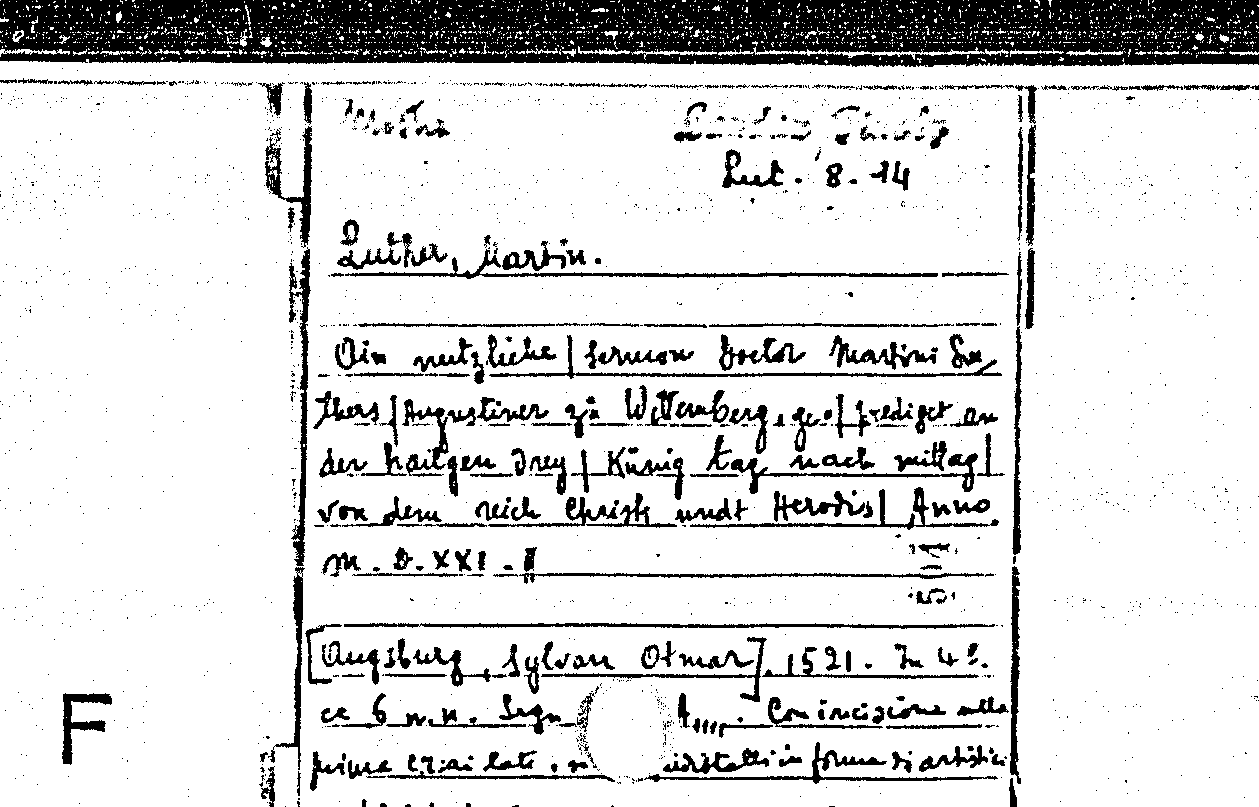 Lut. 8. 14
Luther, Martin.
Ain nutzliche | Sermon Doctor Martini Lu
thers | Augustiner zu Wittemberg, ge. | prediget an
der hailgen drey | Künig tag nach mittag |
von dem reich Christi undt Herodis | Anno.
M. D. XXI. ||
[Augsburg, Sylvan Otmar]. 1521. In 4º.
cc 6 n.n. Segn A. Con incisione nella
prima in forma di artistici
F